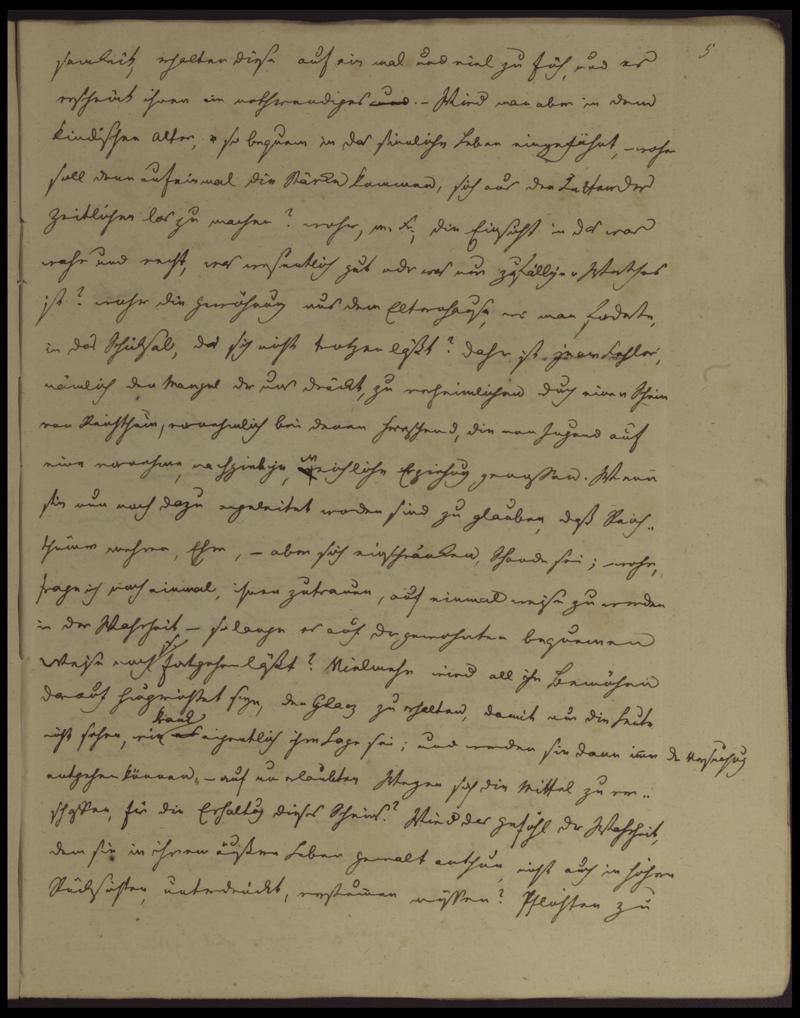 5
samkeit, erhalten diese auf ein mal und viel zu früh, und es
erscheint ihnen ein nothwendiges und. – Wird man aber in dem
kindischen Alter, so bequem in das sinnliche Leben eingeführt, – woher
soll denn auf einmal die Stärke kommen, sich aus den Ketten des
Zeitlichen los zu machen? woher, m. F., die Einsicht in das was
wahr und recht, was wesentlich gut oder was nur zufälligen Werthes
ist? woher die Gewöhnung aus dem Elternhause, wo man forderte,
in das Schicksal, das sich nicht trotzen läßt? Daher ist jener Fehler,
nämlich den Mangel der uns drückt, zu verheimlichen durch einen Schein
von Reichthum, vornehmlich bei denen herrschend, die von Jugend auf
eine vornehme, nachgiebige, weichliche Erziehung genossen. Wenn
sie nun noch dazu angeleitet worden sind zu glauben, daß Reich-
thümer mehren, Ehre, – aber sich einschränken, Schande sei; woher,
frage ich noch einmal, ihnen zutrauen, auf einmal weise zu werden
in der Wahrheit – solange es auf der gewohnten bequemen
Weise noch sich fortgehen läßt? Vielmehr wird all ihr Bemühen
darauf hingerichtet seyn, den Glanz zu erhalten, damit nur die Leute
nicht sehen, wie krank es eigentlich ihre Lage sei; und werden sie dann immer der Versuchung
entgehen können, – auf unerlaubten Wegen sich die Mittel zu ver-
schaffen, für die Erhaltung dieses Scheins? Wird das Gefühl der Wahrheit,
dem sie in ihrem äußern Leben gewalt anthun, nicht auch in höhern
Rücksichten, unterdrückt, verstummen müssen? Pflichten zu